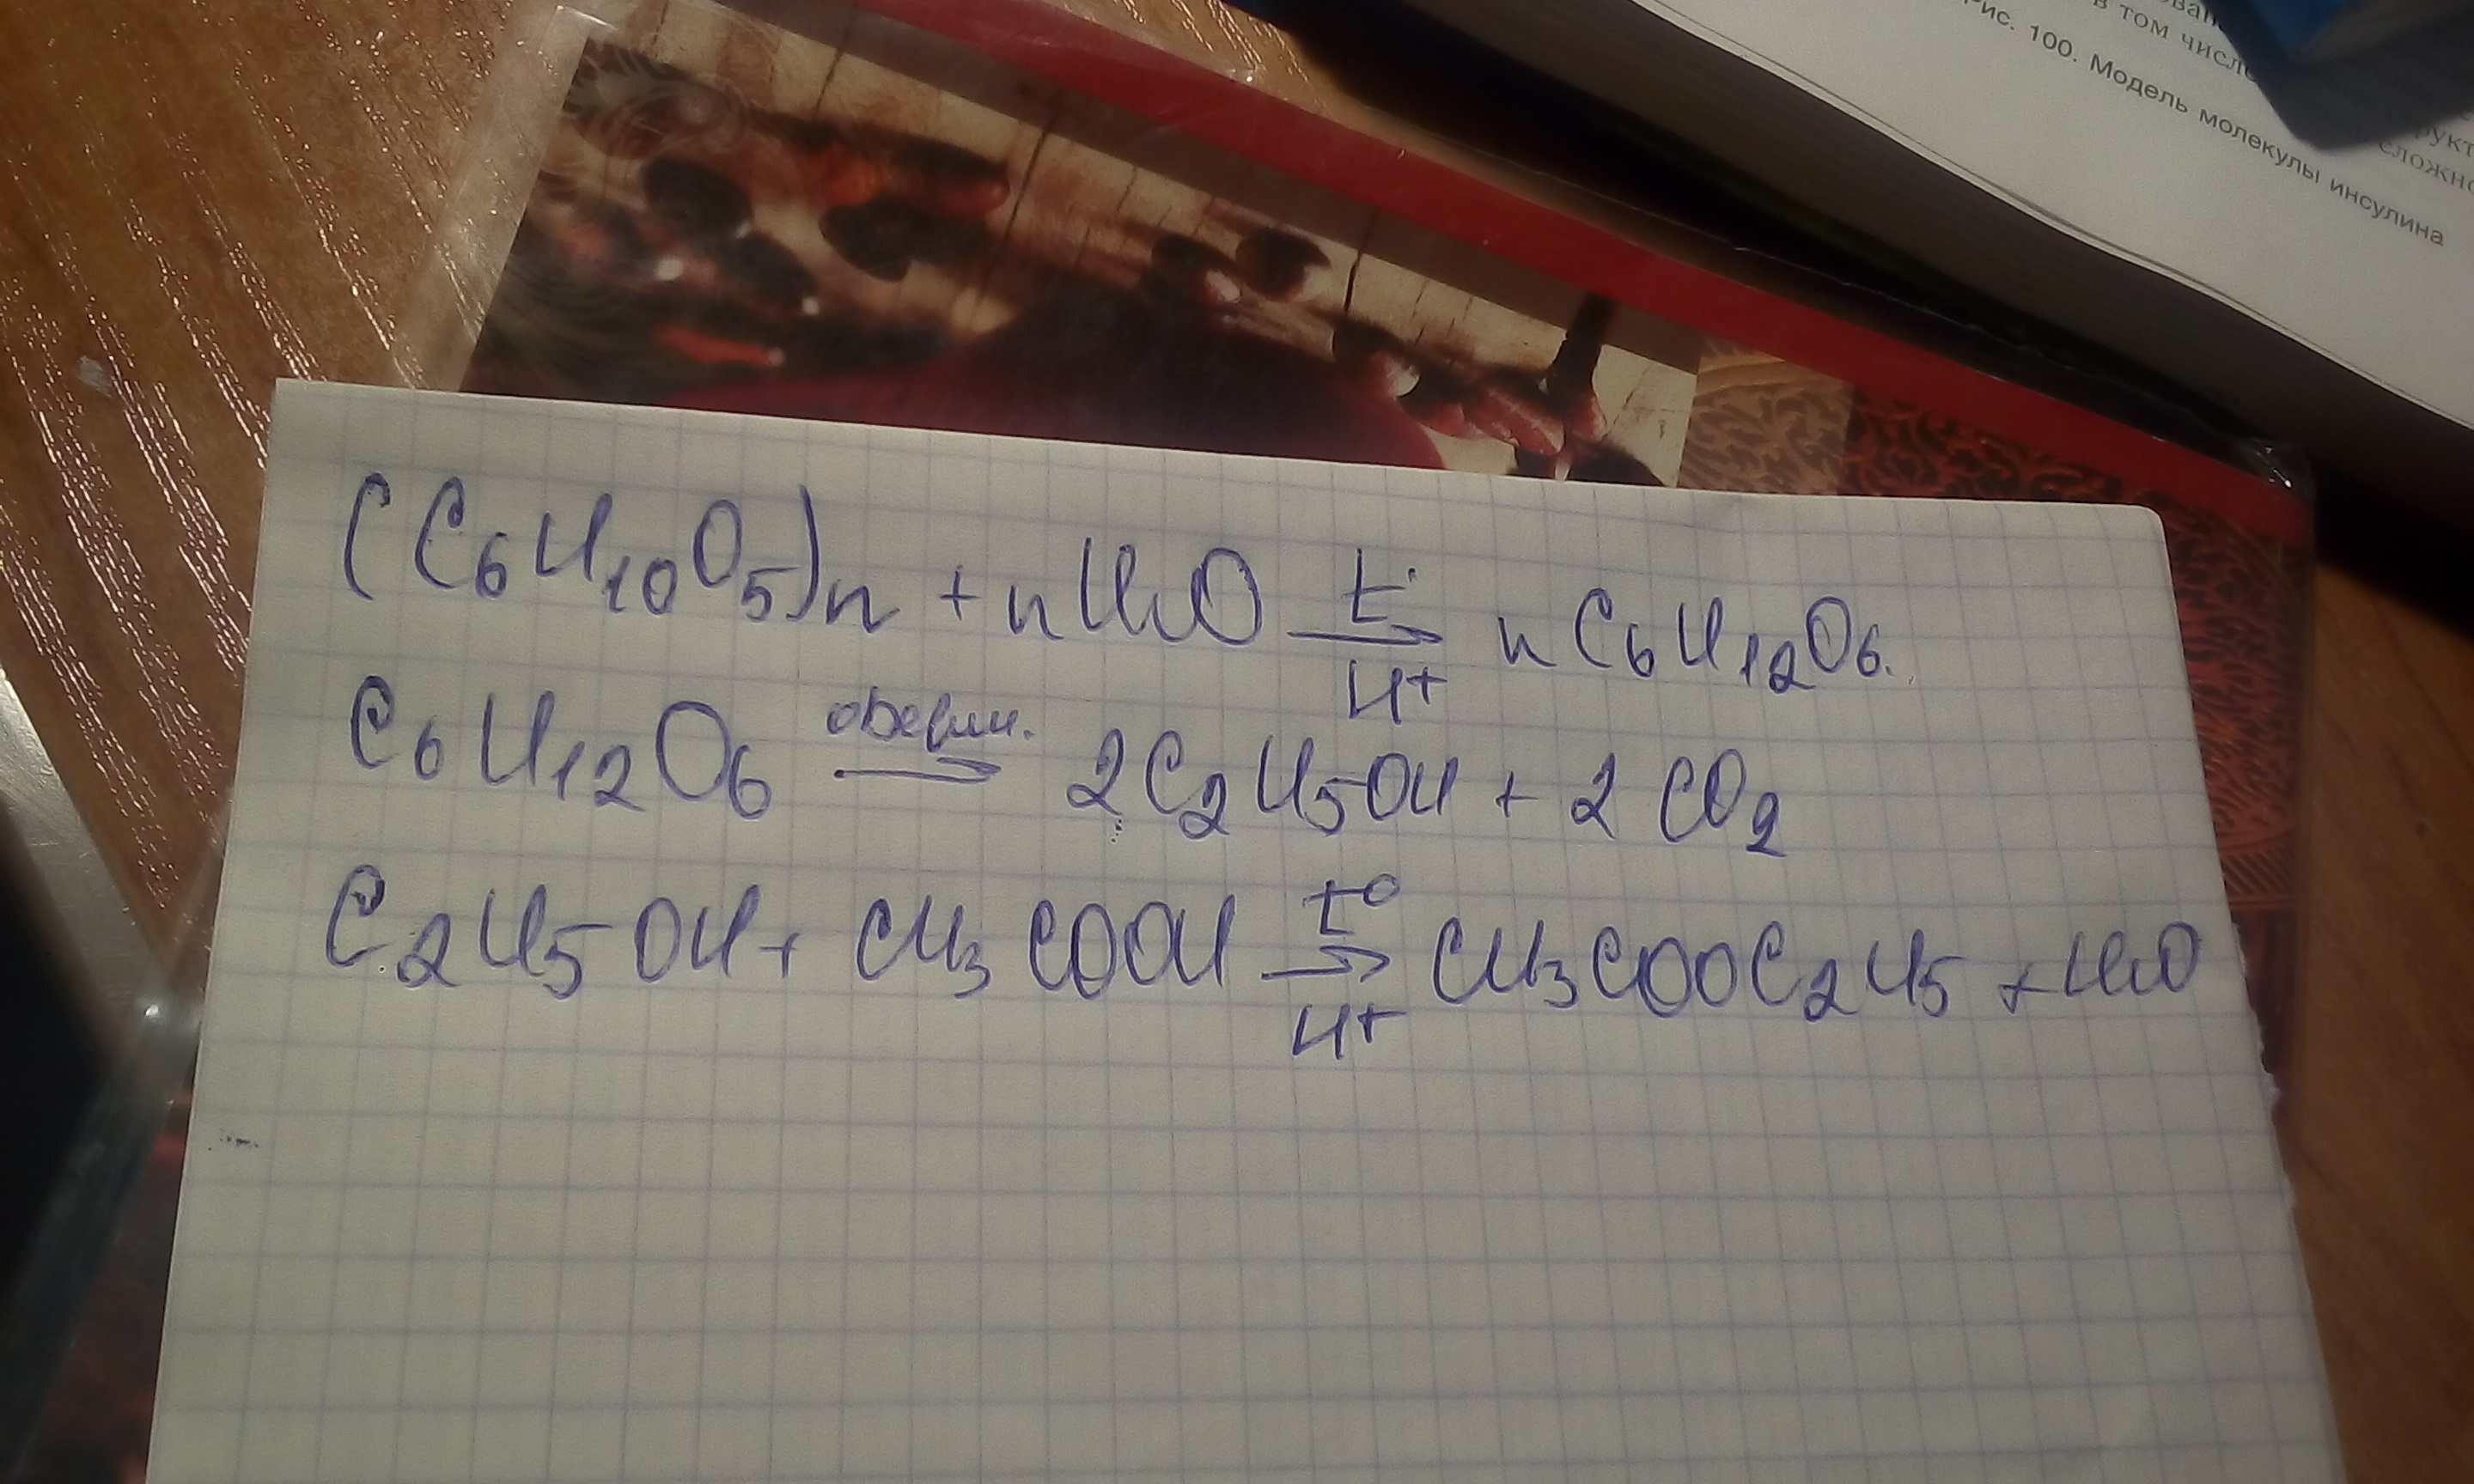 в том числе
Рис. 100. Модель молекулы инсулина
сложно
(C6H10O5)n + nH2O t° → H+ nC6H12O6.
C6H12O6 → 2C2H5OH + 2CO2
C2H5OH + CH3COOH t° → H+ CH3COOC2H5 + H2O